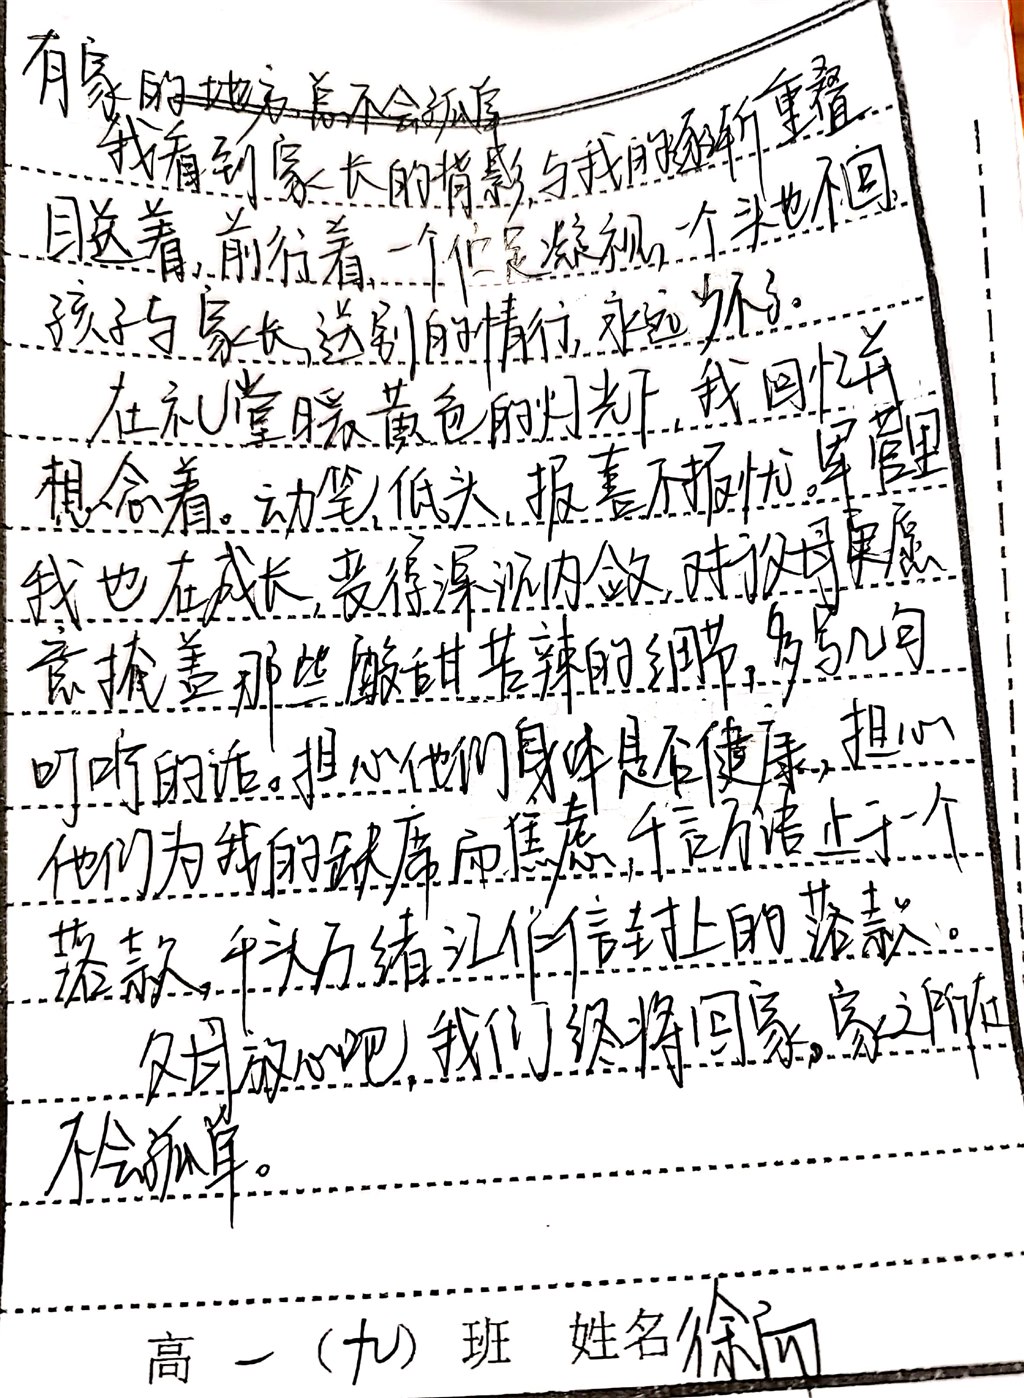 有家的地方总不会孤单
我看到家长的背影,与我的逐渐重叠
目送着,前行着,一个伫足凝视,一个头也不回,
孩子与家长,送别的情行,永远少不了。
在礼堂暖黄色的灯光下,我回忆并
想念着。动笔,低头,报喜不报忧。军营里
我也在成长,变得深沉内敛,对父母更愿
意掩盖那些酸甜苦辣的细节,多写几句
叮咛的话。担心他们身体是否健康,担心
他们为我的缺席而焦虑,千言万语止于一个
落款,千头万绪汇作信封上的落款。
父母放心吧,我们终将回家,家之所在
不会孤单。
高一(九)班 姓名徐